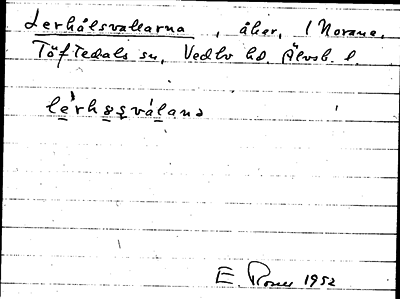 Lerhålsvallarna, åker, 1 Norane,
Töftedals sn, Vedbo hd. Älvsb. l.
lerhsválana
E. 1952